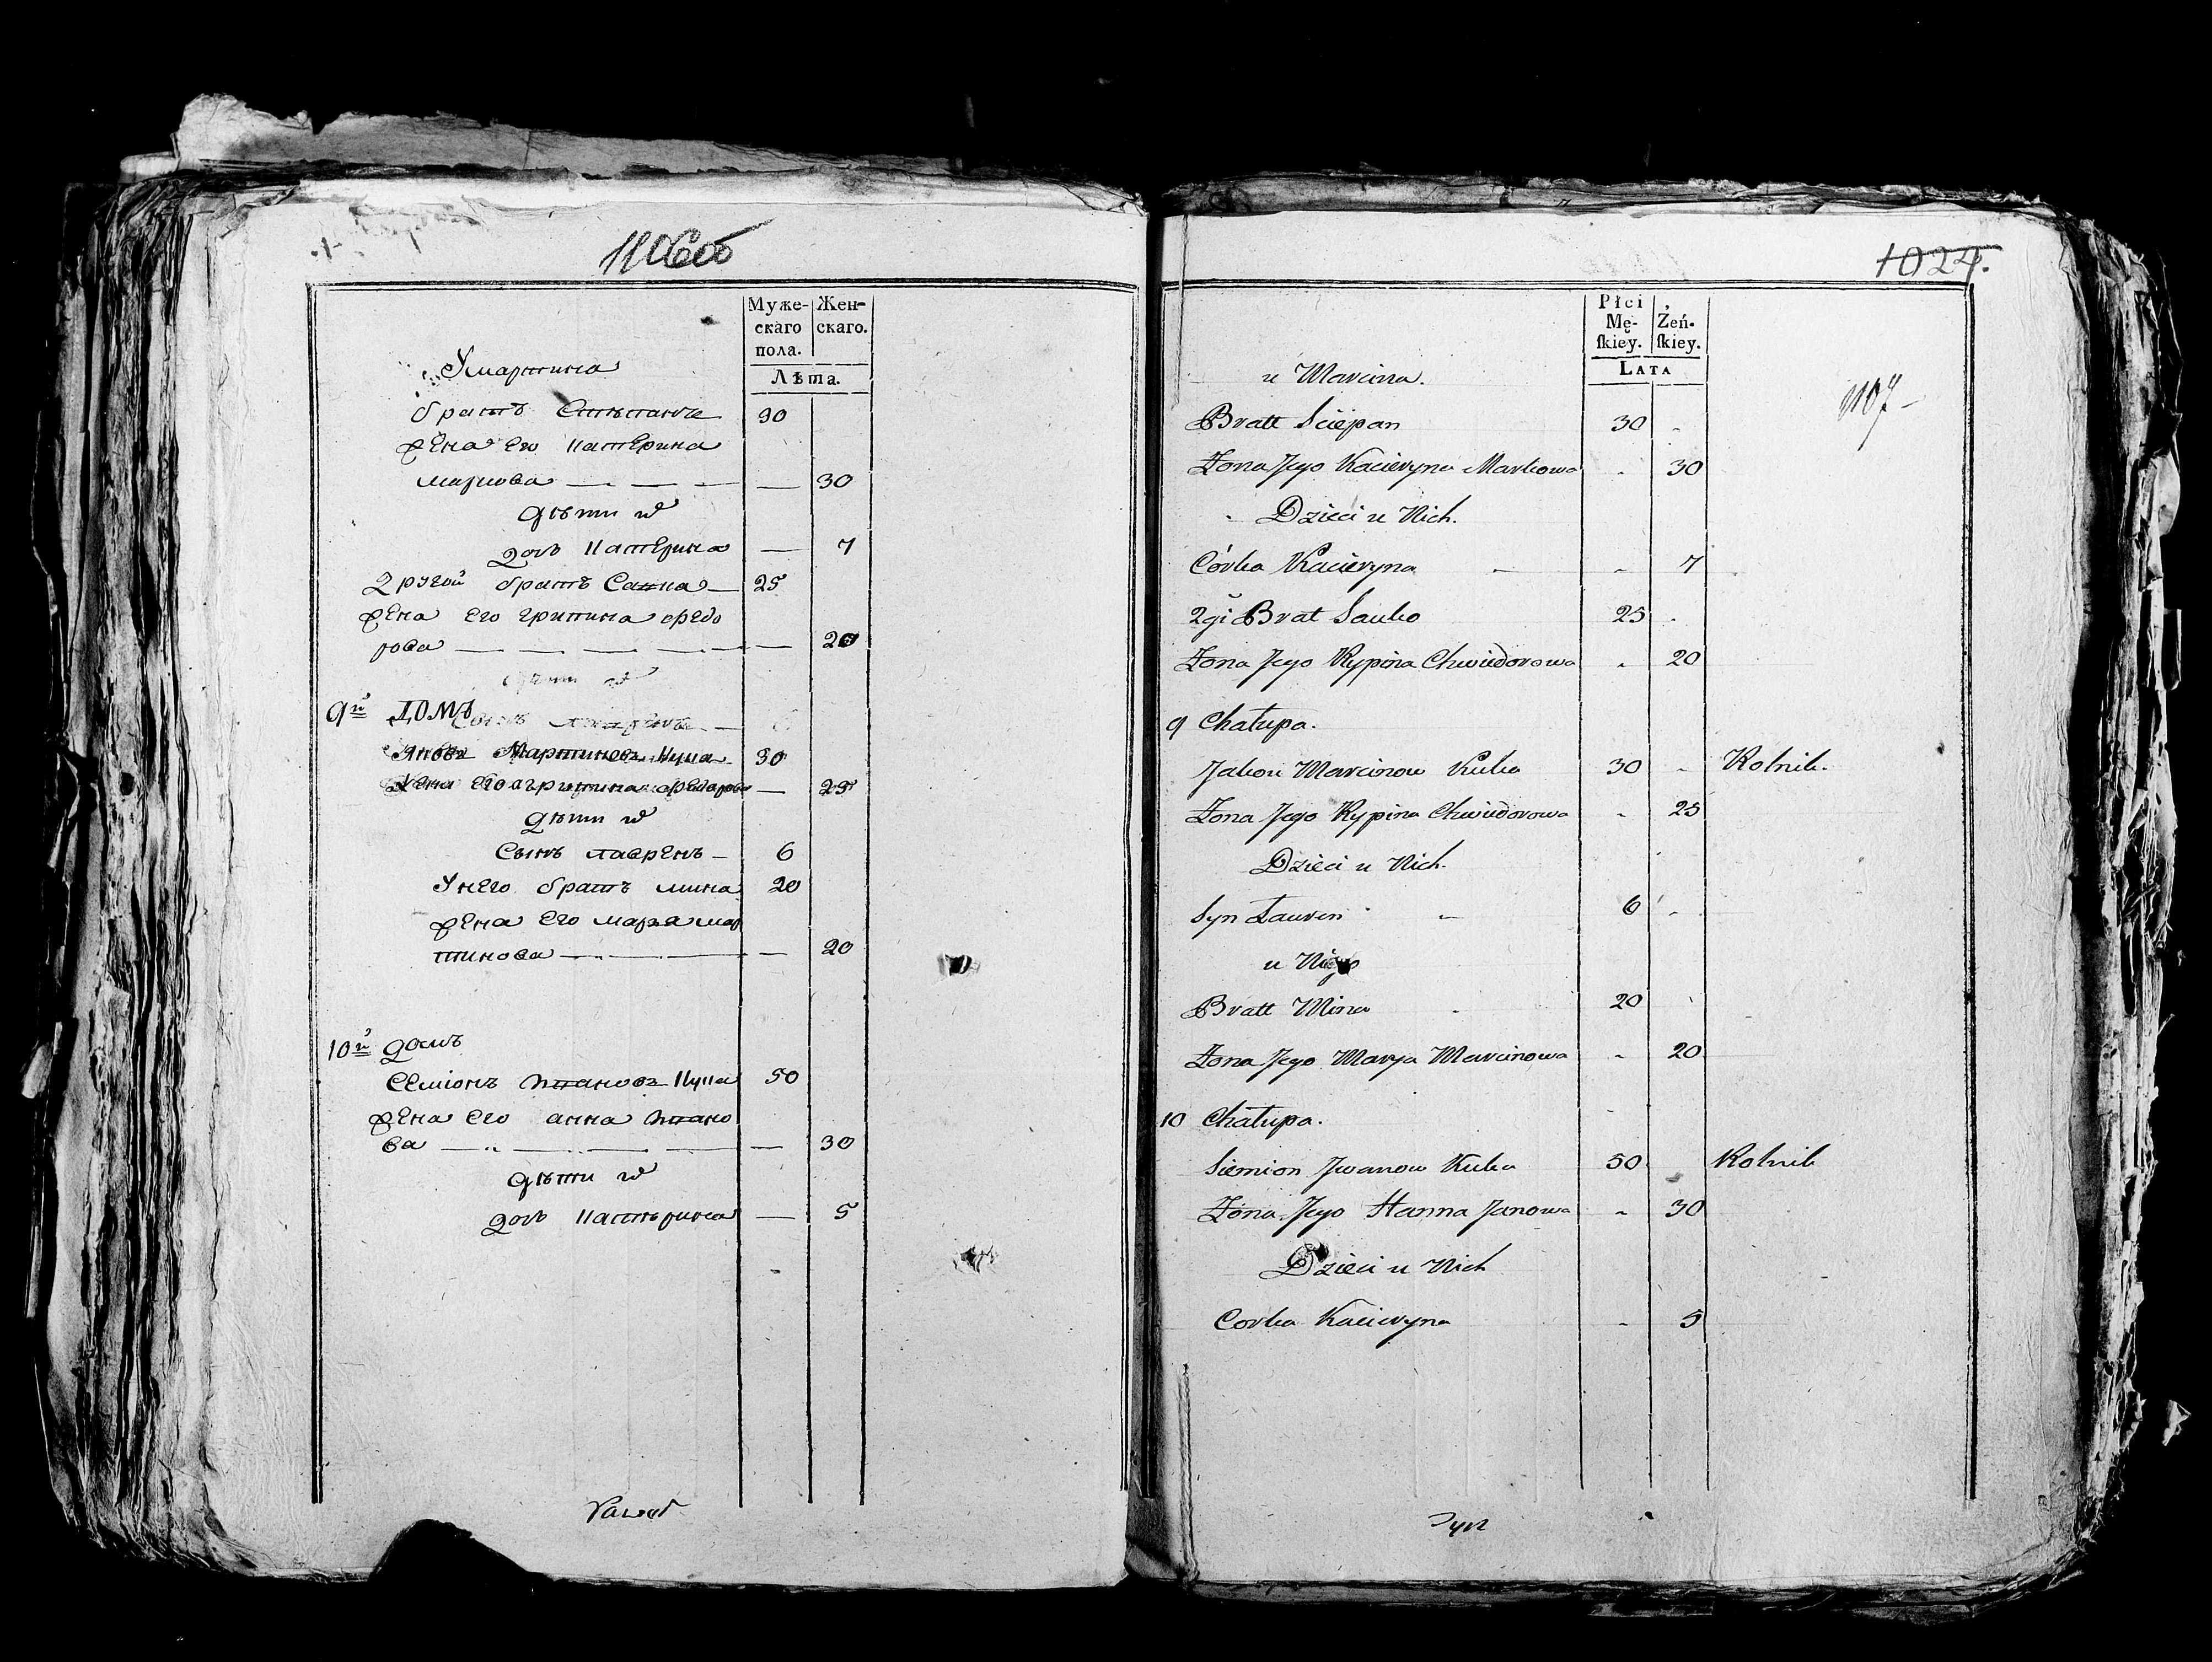 1106об
Муже-
скаго
пола.
Жен-
скаго.
Лѣта.
Умартина
братъ Стѣпанъ 30
жена его катерина
маркова — 30
дѣти их
дочь Катерина — 7
другой братъ Савка — 25
жена его грипина федо
рова — 20
дѣти их
9й ДОМЪ
Яковъ Мартиновъ Кука 30
Жена Его агрипина федорова — 25
дѣти их
Сынъ лавренъ — 6
Унего братъ мина 20
жена его марья мар
тинова — 20
10й домъ
Семіонъ Ивановъ Кука 50
жена его анна Ивано
ва — 30
дѣти их
дочь Катѣрина — 5
1024.
Płci
Mę-
skiey.
Żeń-
skiey.
LATA
1107
u Marcina.
Bratt Sciepan 30 -
Żona Jego Kacieryna Markowa - 30
Dzieci u Nich.
Córka Kacieryna - 7
2gi Brat Sauko 25 -
Żona Jego Rypina Chwiedorowa - 20
9 Chałupa.
Jakou Marcinow Kuka 30 - Rolnik.
Żona Jego Rypina Chwiedorowa - 25
Dzieci u Nich.
Syn Łauren 6 -
u Nigo
Bratt Mina 20
Żona Jego Marya Marcinowa - 20
10 Chałupa.
Siemion Jwanow Kuka 50 Rolnik
Żona Jego Hanna Janowa - 30
Dzieci u Nich
Corka Kacieryna - 5